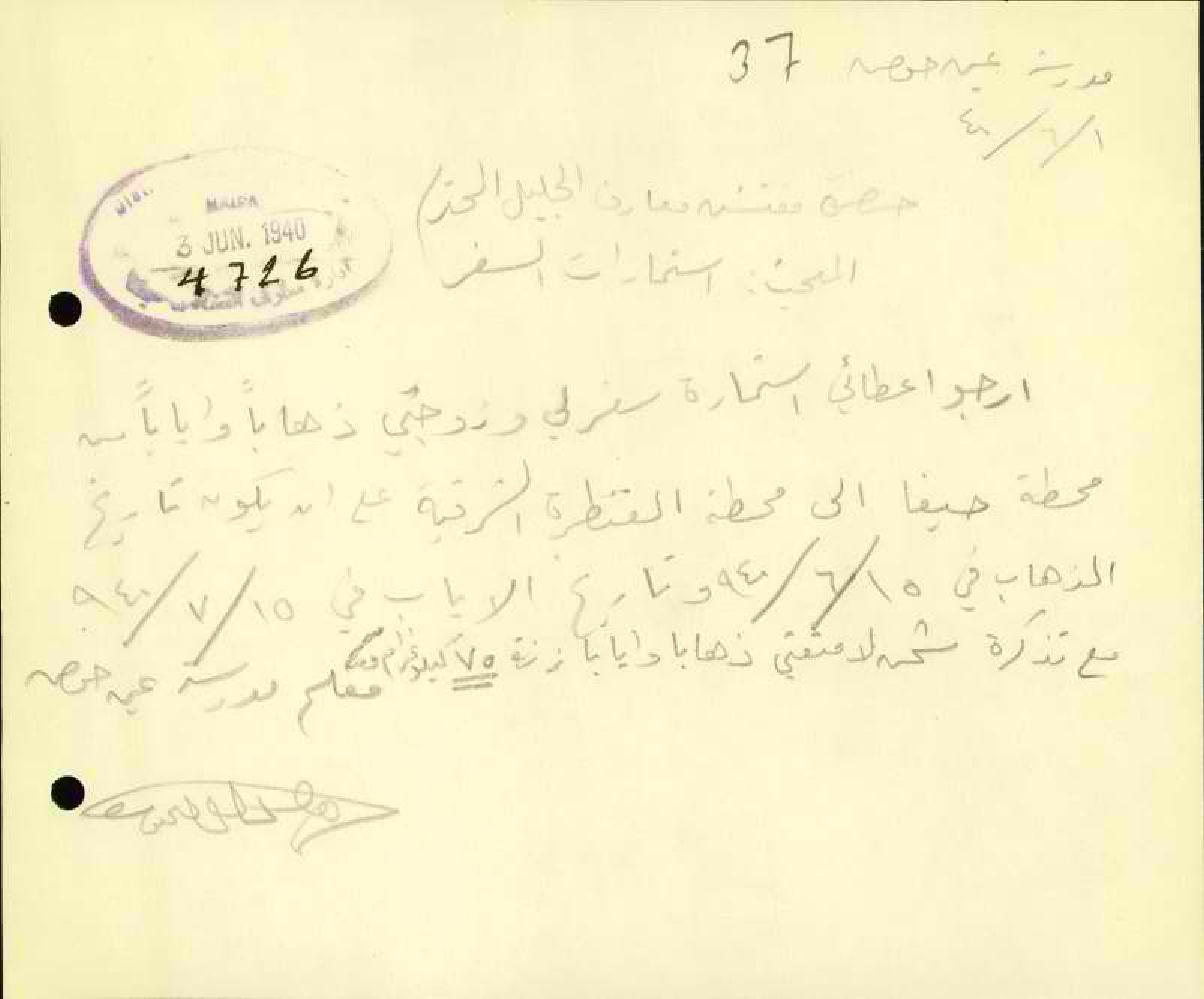 مدرسة عين حوض 37
١/٦/٤٠
حضرة مفتش معارف الجليل المحترم
HAIFA
3 JUN. 1940
4726
ادارة معارف
المبحث: استمارات السفر
ارجو اعطائي استمارة سفر لي وزوجتي ذهاباً واياباً من
محطة حيفا الى محطة القنطرة الشرقية على ان يكون تاريخ
الذهاب في ١٥/٦/٩٤٠ وتاريخ الاياب في ١٥/٧/٩٤٠
مع تذكرة شحن لامتعتي ذهابا وايابا زنة ٧٥ كيلوغرام
معلم مدرسة عين حوض